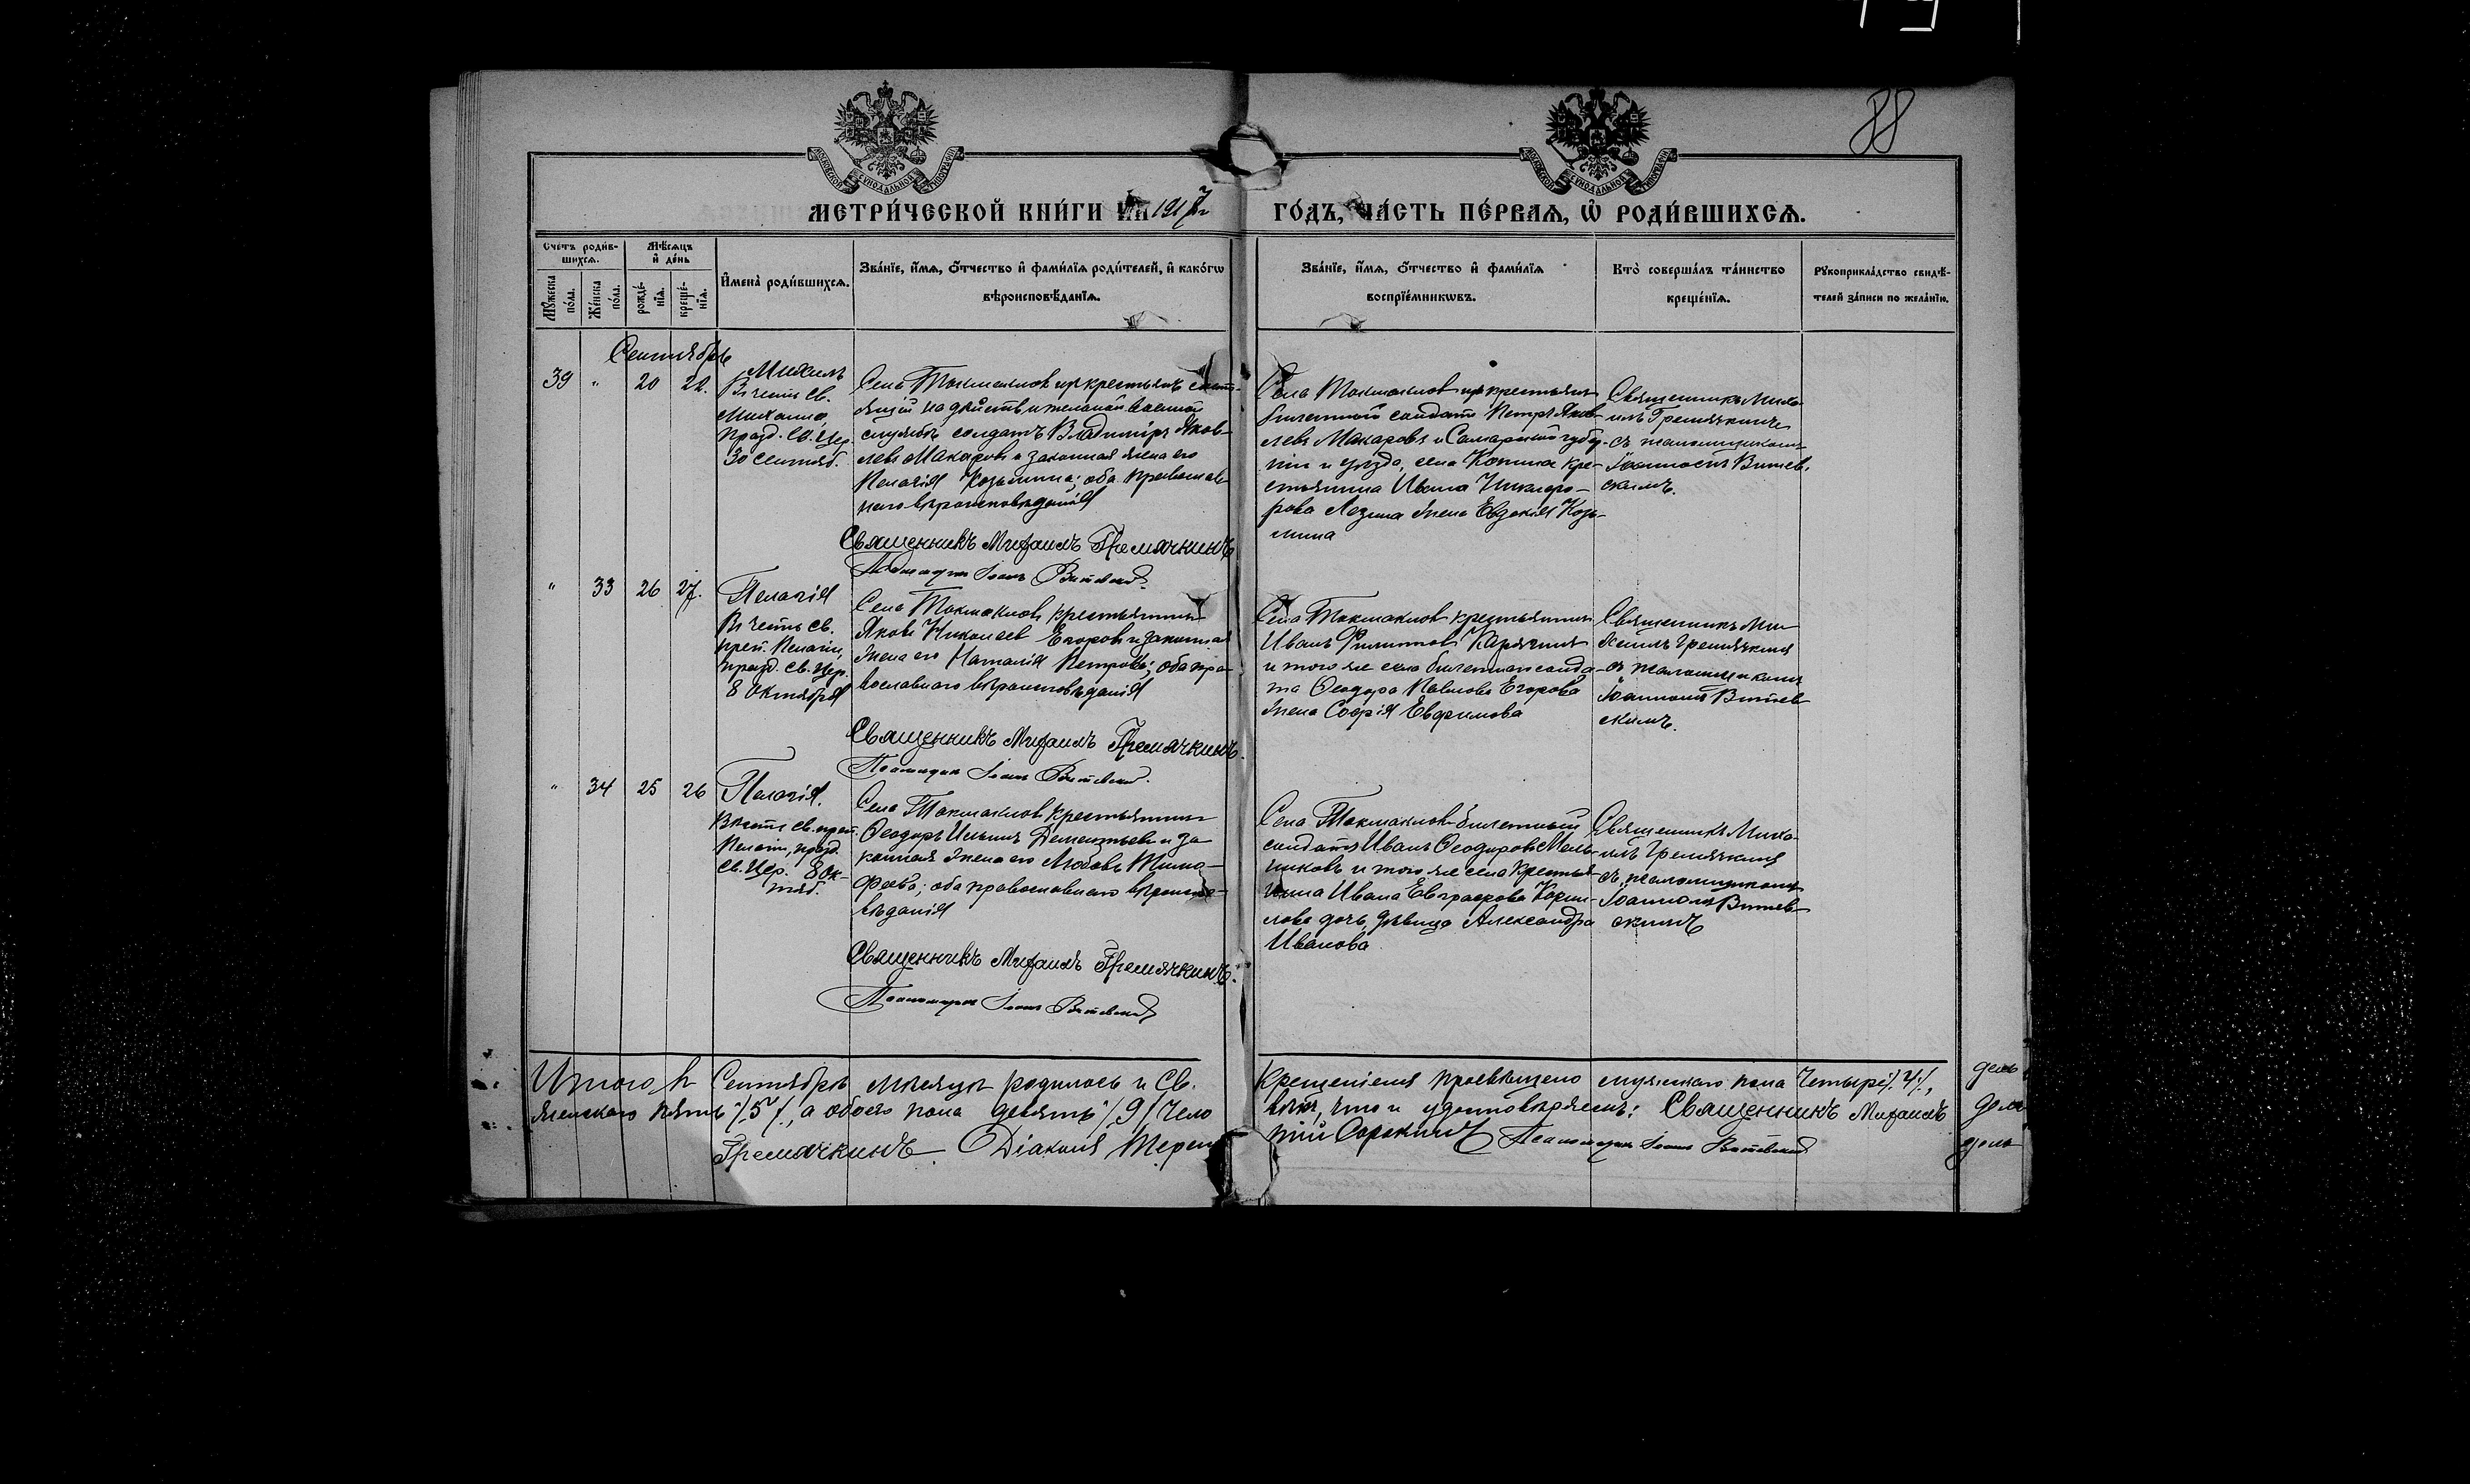 88
МОСКОВСКОЙ СѴНОДАЛЬНОЙ ТИПОГРАФІИ
МОСКОВСКОЙ СѴНОДАЛЬНОЙ ТИПОГРАФІИ
МЕТРИ́ЧЕСКОЙ КНИ́ГИ НА 1917 г ГО́ДЪ, ЧА́СТЬ ПЕ́РВАѦ, Ѽ РОДИ́ВШИХСѦ.
Сче́тъ роди́в-
шихсѧ.
Мѣ́сѧцъ
и҆ де́нь
Мꙋ́жеска
по́ла.
Же́нска
по́ла.
рожде́-
нїѧ.
креще́-
нїѧ.
И҆мена̀ роди́вшихсѧ.
Зва́нїе, и҆́мѧ, ѻ҆́тчество и҆ фами́лїѧ роди́телей, и҆ како́гѡ
вѣроисповѣ́данїѧ.
Зва́нїе, и҆́мѧ, ѻ҆́тчество и҆ фами́лїѧ
воспрїе́мникѡвъ.
Кто̀ соверша́лъ та́инство
креще́нїѧ.
Рꙋкоприкла́дство свидѣ́-
телей за́писи по жела́нїю.
Сентябрь
39 " 20 22.
Михаилъ
Въ честь Св.
Михаила,
празд. Св. Цер.
30 Сентяб.
Села Токмаклов изъ крестьянъ состо-
ящій на действительной военной
службѣ солдатъ Владиміръ Яков-
левъ Макаровъ и законная жена его
Пелагія Козьмина; оба православ-
наго вѣроисповѣданія
Священникъ Михаилъ Гремячкинъ
Псаломщик Іоанн Витевский
Села Токмаклов изъ крестьян
билетный солдатъ Петръ Яков-
левъ Макаровъ и Самарской губер-
ніи и уѣзда, села Кре-
стьянина Ивана Никифо-
рова жена Евдокія Козь-
мина
Священникъ Миха-
илъ Гремячкинъ
съ псаломщикомъ
Іоанномъ Витев-
скимъ.
" 33 26 27.
Пелагія
Въ честь Св.
преп. Пелагіи,
празд. Св. Цер.
8 Октября
Села Токмаклов крестьянинъ
Яковъ Николаев Егоров и законная
жена его Наталія Петрова; оба пра-
вославнаго вѣроисповѣданія
Священникъ Михаилъ Гремячкинъ.
Псаломщик Іоанн Витевский.
Села Токмаклов крестьянин
Иванъ Филиппов Карягин
и того же села билетнаго солда-
та Ѳеодора Павлова Егорова
жена Софія Евфимова
Священникъ Ми-
хаилъ Гремячкинъ
съ псаломщикомъ
Іоанномъ Витев-
скимъ.
" 34 25 26
Пелагія.
Въ честь Св. преп.
Пелагіи, празд.
Св. Цер. 8 Ок-
тяб.
Села Токмаклов крестьянин
Ѳеодоръ Ильинъ Дементьев и за-
конная жена его Любовь Тимо-
феева; оба православнаго вѣроиспо-
вѣданія
Священникъ Михаилъ Гремячкинъ.
Псаломщик Іоанн Витевский
Села Токмаклов билетный
солдатъ Иванъ Ѳеодоровъ Мель-
никовъ и того же села Крестья-
нина Ивана Евграфова Кори-
лова дочь, дѣвица Александра
Иванова
Священникъ Миха-
илъ Гремячкинъ
съ псаломщикомъ
Іоанномъ Витев-
скимъ
Итого въ Сентябрѣ мѣсяцѣ родилось и Св. Крещеніемъ просвѣщено мужескаго пола четыре /4/,
женскаго пять /5/, а обоего пола девять /9/ чело вѣкъ, что и удостовѣряемъ: Священникъ Михаилъ
Гремячкинъ Діаконъ Терен тій Сорокинъ Псаломщик Іоанн Витевский